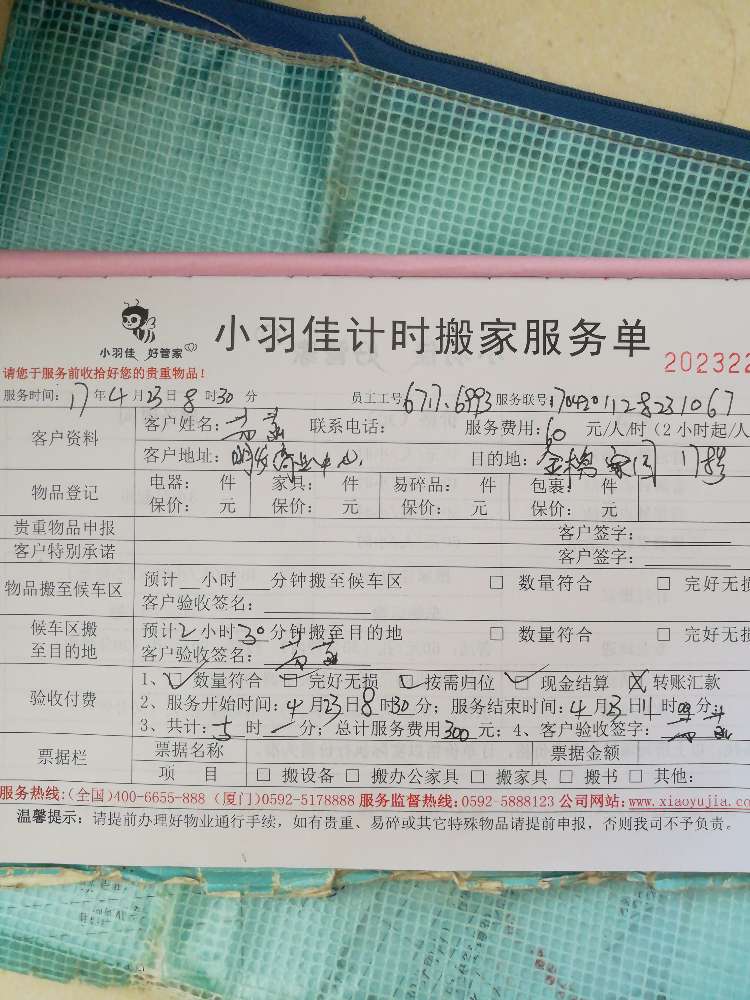 小羽佳 好管家
小羽佳计时搬家服务单
202322
请您于服务前收拾好您的贵重物品!
服务时间: 17年4月23日8时30分 员工工号: 6717.6993 服务联号: 1704201128231067
客户资料 客户姓名: 联系电话: 服务费用: 60 元/人/时(2小时起/人
客户地址: 明发商业中心. 目的地: 金 家园 17
物品登记 电器: 件 家具: 件 易碎品: 件 包裹: 件
保价: 元 保价: 元 保价: 元 保价: 元
贵重物品申报 客户签字:
客户特别承诺 客户签字:
物品搬至候车区 预计 小时 分钟搬至候车区 □ 数量符合 □ 完好无损
客户验收签名:
候车区搬至目的地 预计2小时30分钟搬至目的地 □ 数量符合 □ 完好无损
客户验收签名:
验收付费 1、☑ 数量符合 ☑ 完好无损 ☑ 按需归位 ☑ 现金结算 ☒ 转账汇款
2、服务开始时间: 4月23日8时30分; 服务结束时间: 4月23日11时 分;
3、共计: 5时 分; 总计服务费用300元; 4、客户验收签字:
票据栏 票据名称 票据金额
项 目 □ 搬设备 □ 搬办公家具 □ 搬家具 □ 搬书 □ 其他:
服务热线:(全国)400-6655-888 (厦门)0592-5178888 服务监督热线:0592-5888123 公司网站:www.xiaoyujia.co
温馨提示: 请提前办理好物业通行手续, 如有贵重、易碎或其它特殊物品请提前申报, 否则我司不予负责。